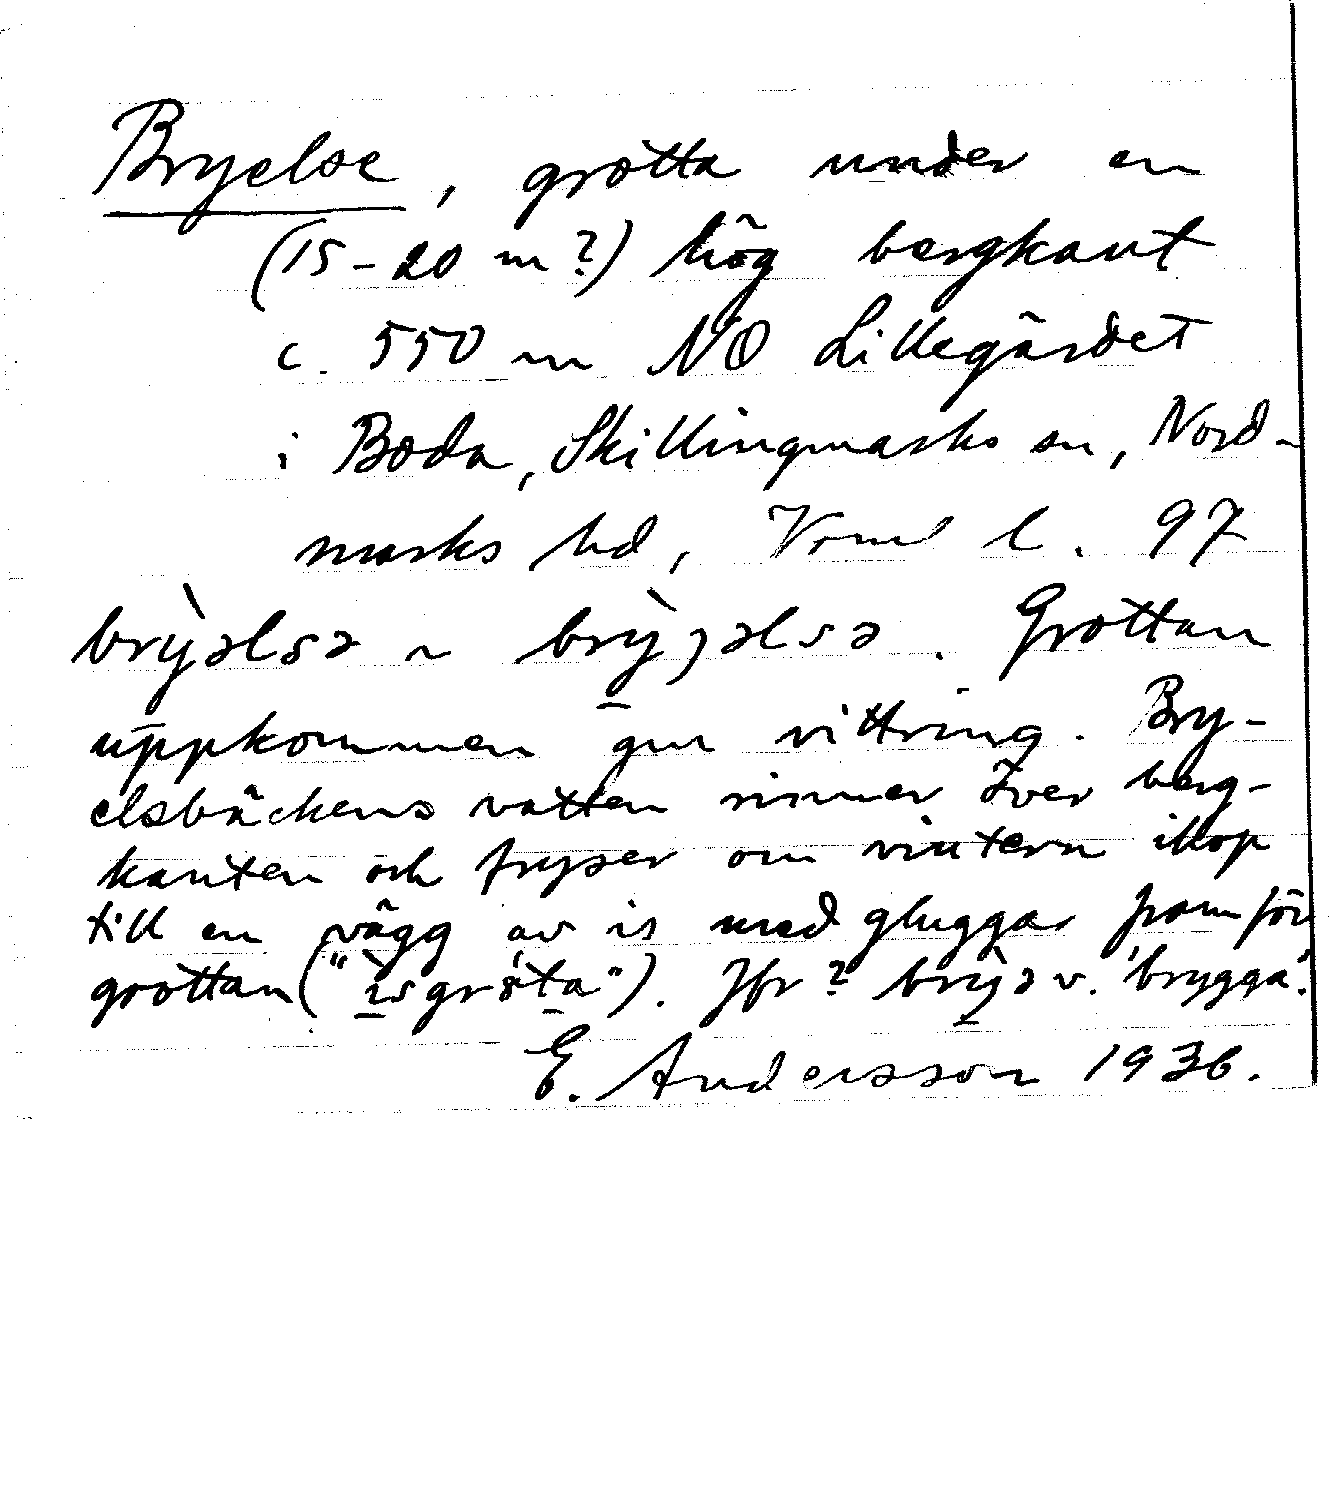 Bryelse, grotta under en
(15-20 m?) hög bergkant
c. 550 m NO Lillegärdet
i Boda, Skillingmarks sn, Nord-
marks hd, Vrml l. 97
brỳəlsə ~ brỳjəlsə. Grottan
uppkommen gm vittring. Bry-
elsbäckens vatten rinner över berg-
kanten och fryser om vintern ihop
till en vägg av is med gluggar framför
grottan ("ìsgrota"). Jfr? brỳə v. 'brygga'.
E. Andersson 1936.